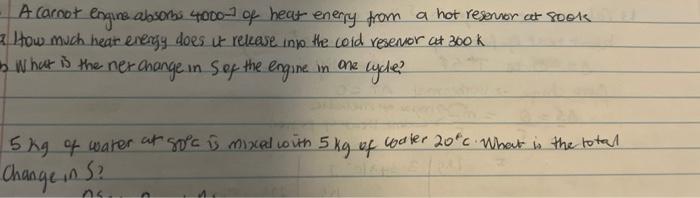 A Carnot engine absorbs 4000-J of heat energy from a hot resevoir at 500k
a How much heat energy does it release into the cold resevoir at 300 k
b What is the net change in S of the engine in one cycle?
5 kg of water at 80°C is mixed with 5 kg of water 20°C. What is the total
Change in S?